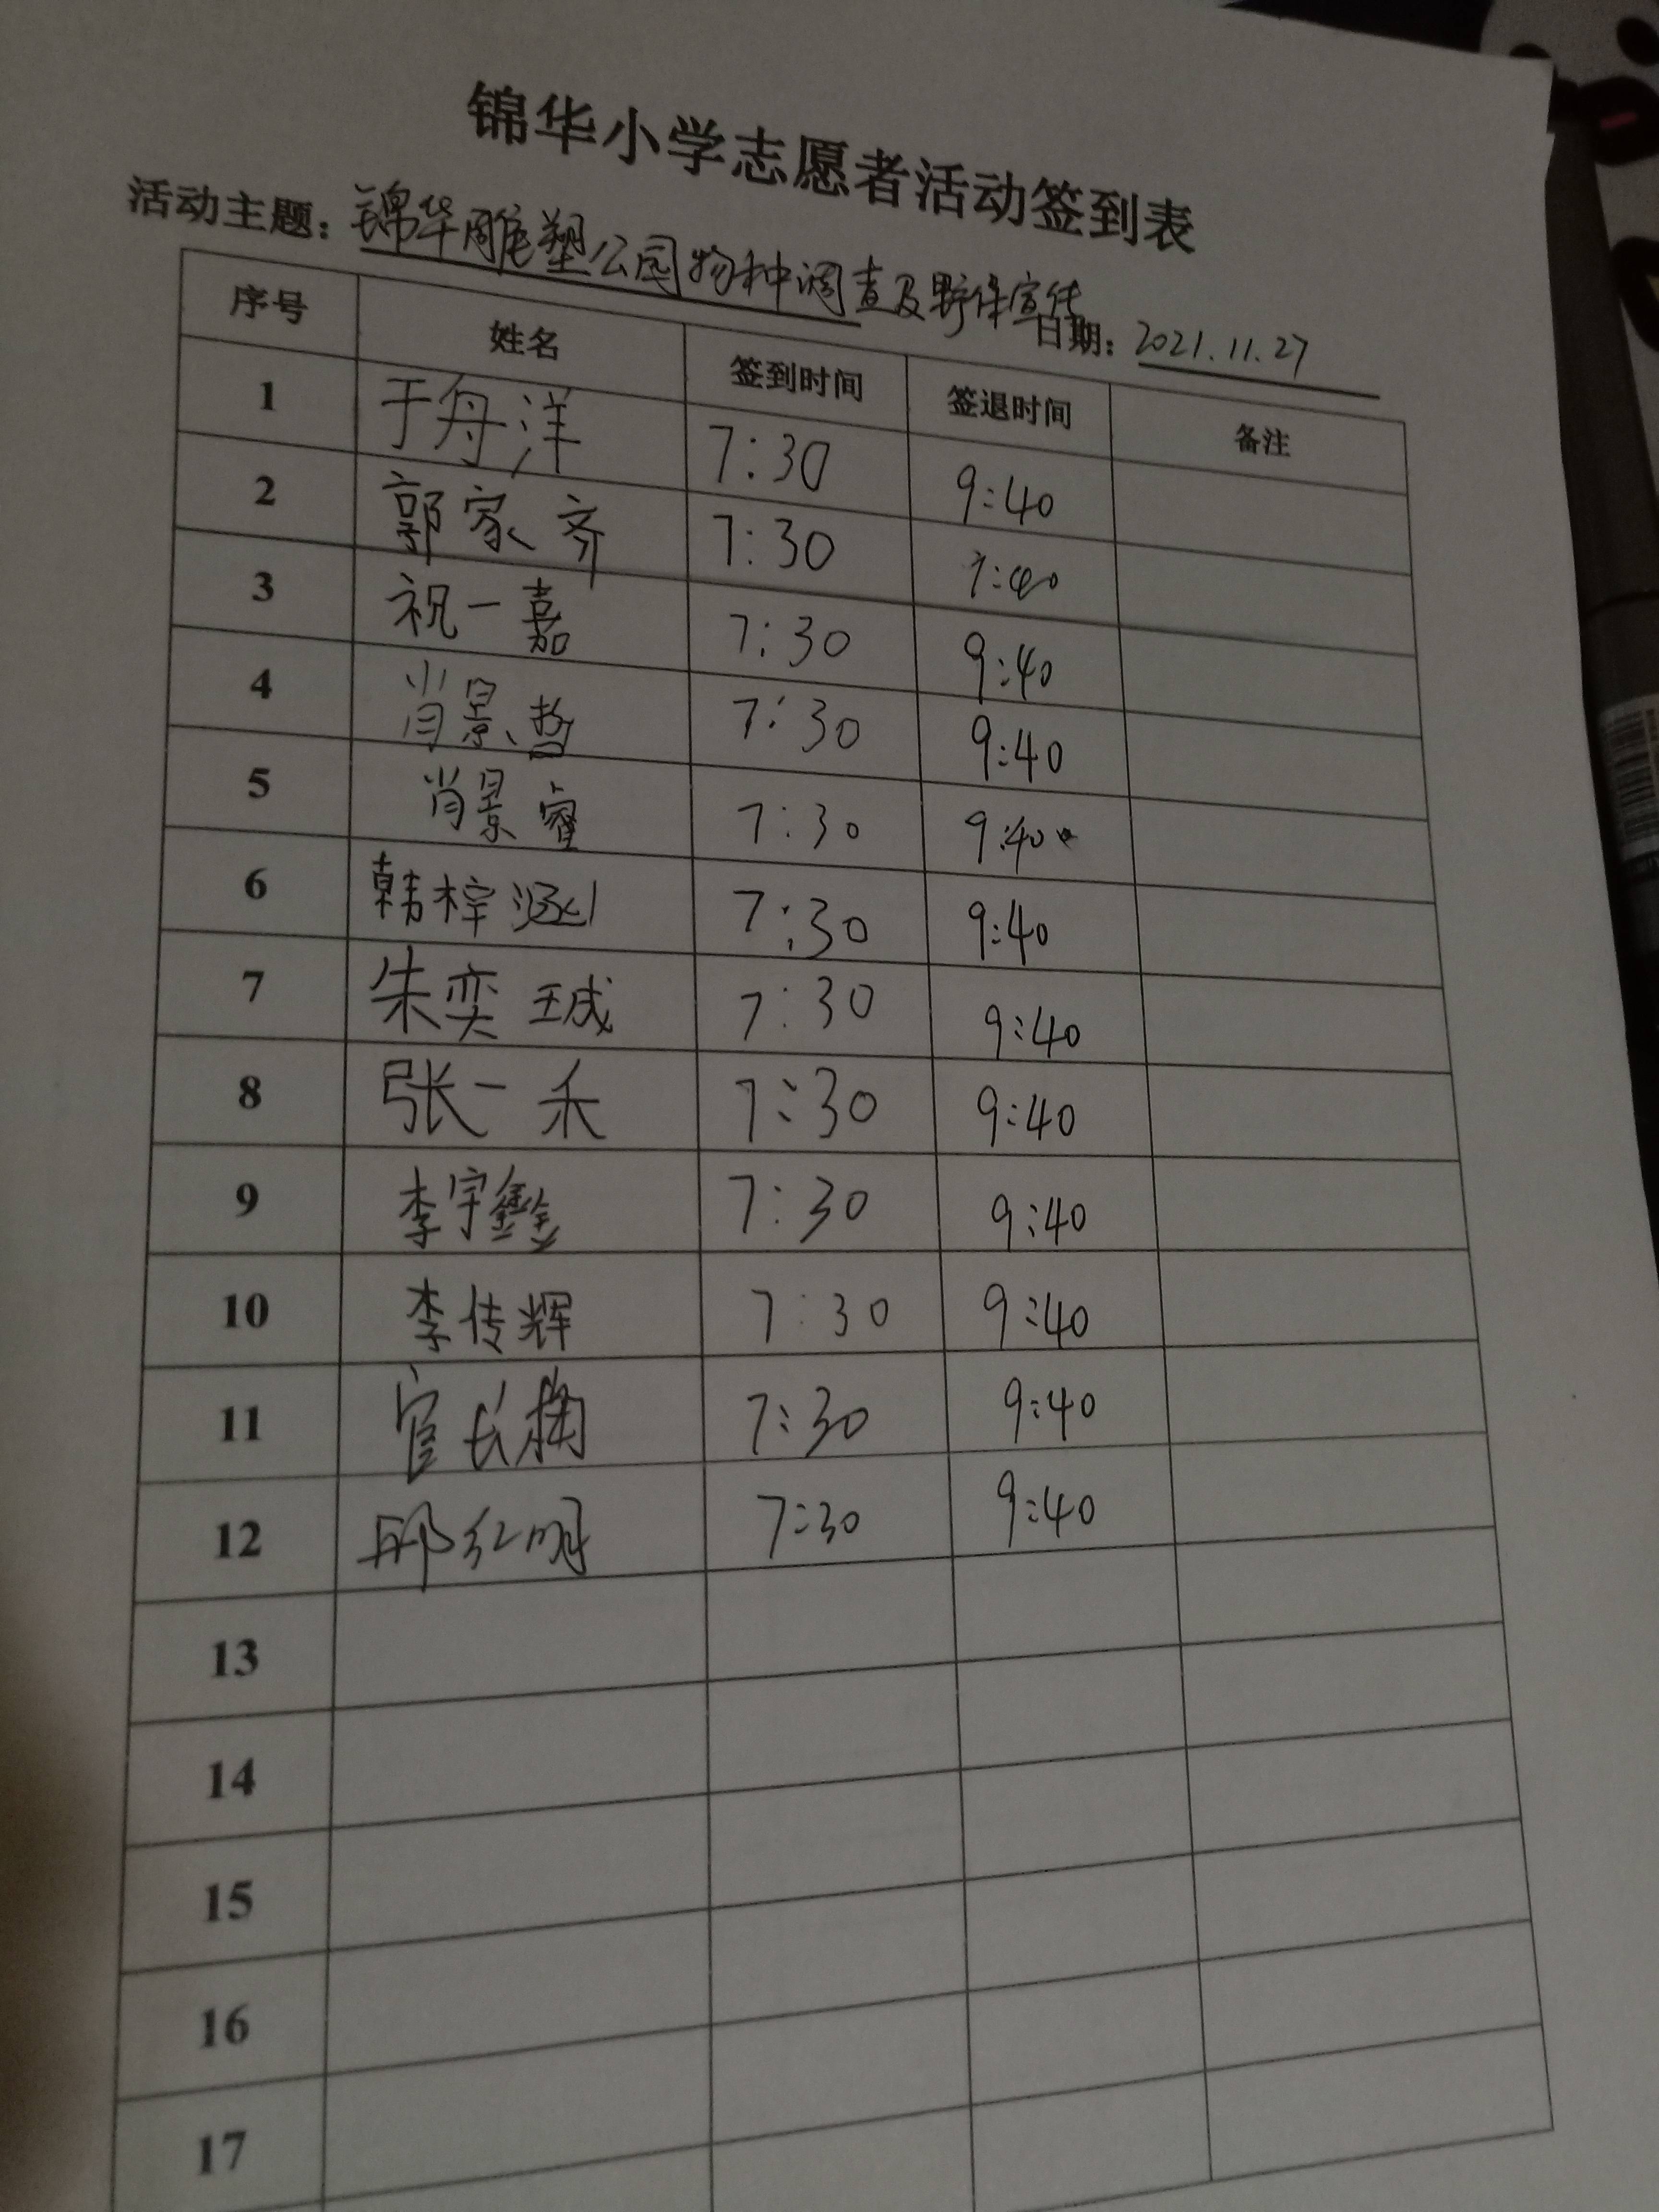 锦华小学志愿者活动签到表
活动主题：锦华雕塑公园物种调查及野保宣传
日期：2021.11.27
序号 姓名 签到时间 签退时间 备注
1 于舟洋 7:30 9:40
2 郭家齐 7:30 9:40
3 祝一嘉 7:30 9:40
4 肖景哲 7:30 9:40
5 肖景睿 7:30 9:40
6 韩梓涵 7:30 9:40
7 朱奕珹 7:30 9:40
8 张一禾 7:30 9:40
9 李宇鑫 7:30 9:40
10 李传辉 7:30 9:40
11 7:30 9:40
12 7:30 9:40
13
14
15
16
17